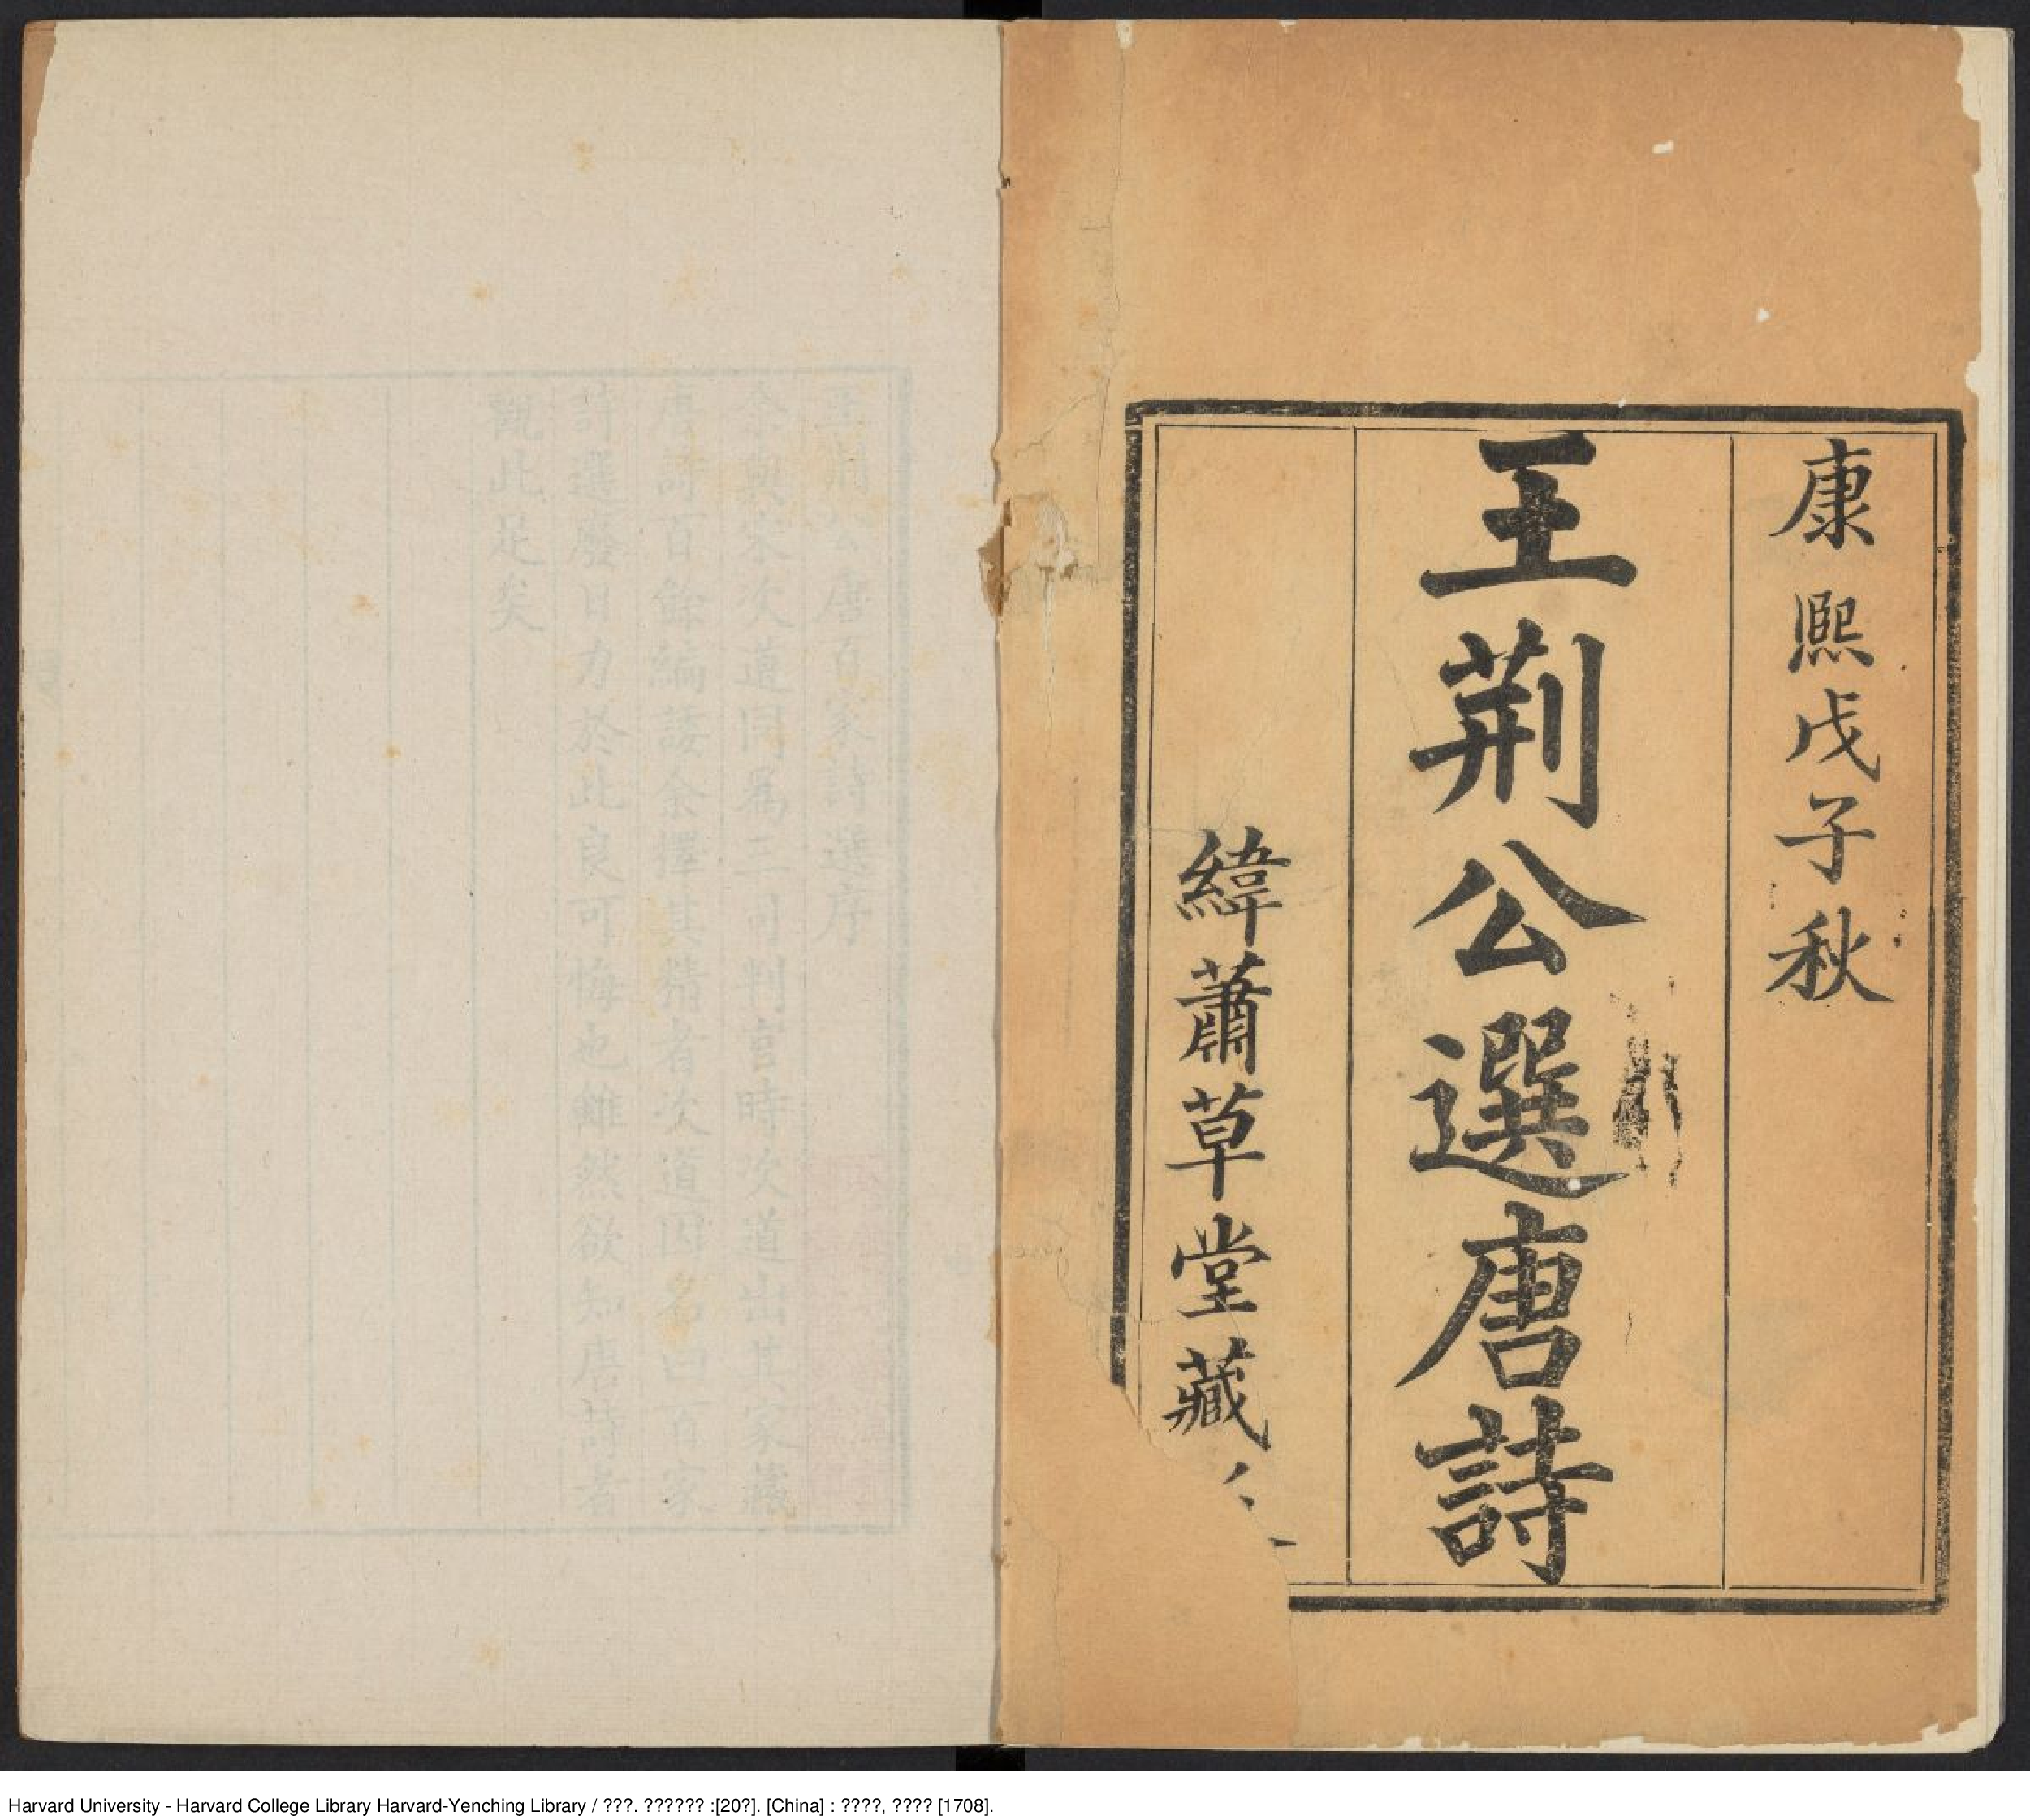 康熙戊子秋
王荊公選唐詩
緯蕭草堂藏
王荊公唐百家詩選序
余與宋次道同爲三司判官時次道出其家藏
唐詩百餘編諉余擇其精者次道因名曰百家
詩選廢日力於此良可悔也雖然欲知唐詩者
觀此足矣
Harvard University - Harvard College Library Harvard-Yenching Library / ???. ?????? :[20?]. [China] : ????, ???? [1708].